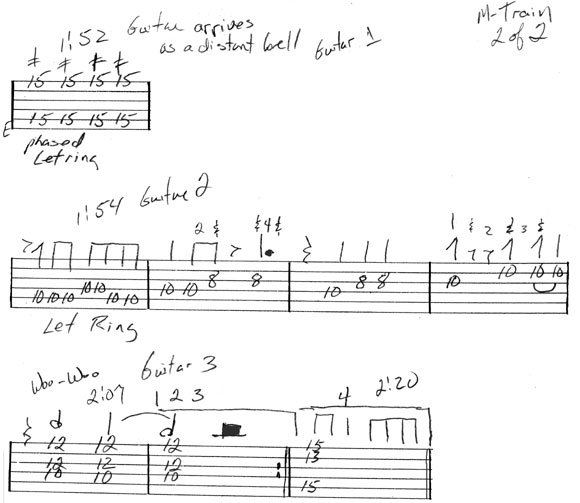 M-Train
2 of 2
1:52 Guitar arrives
as a distant bell Guitar 1
15 15 15 15
E 15 15 15 15
phased
Let ring
1:54 Guitar 2
2 & & 4 & 1 & 2 & 3 &
8 8 8 8 10 10 10
10 10 10 10 10 10 10 10 10 10 10
Let Ring
Woo-Woo 2:07 Guitar 3
1 2 3 4 2:20
12 12 12 15
12 12 12 13
10 10 10 15